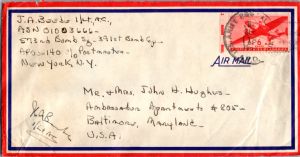 J.A. Beebe 1/Lt, A.C.,
ASN 01003666
573rd Bomb Sq - 391st Bomb Gp
APO - 140 % Postmaster
New York, N.Y.
AIR MAIL
Mr. & Mrs. John H. Hughes
Ambassador Apartments # 205 -
Baltimore, Maryland
U.S.A.